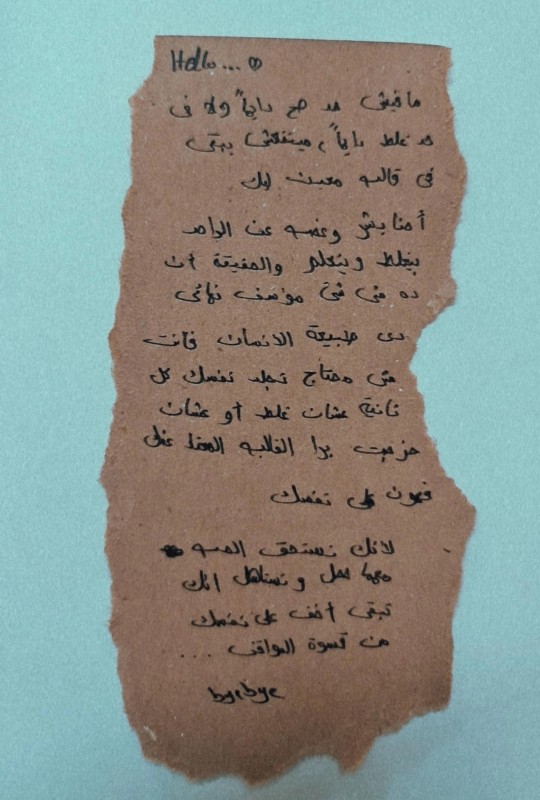 Hello... ♡
مافيش حد صح دايماً ولا فى
حد غلط دايماً، مينفعش يبقى
فى قالب معين ليك
أحنا بشر وغصب عن الواحد
بيغلط ويتعلم والحقيقة أن
ده مش شئ مؤسف نهائى
دى طبيعة الانسان فأنت
مش محتاج تجلد نفسك كل
ثانية عشان غلط أو عشان
خرجت برا القالب
فهون على نفسك
لأنك تستحق الحب
مهما حصل وتستاهل انك
تبقى أخف على نفسك
من قسوة المواقف ...
byebye